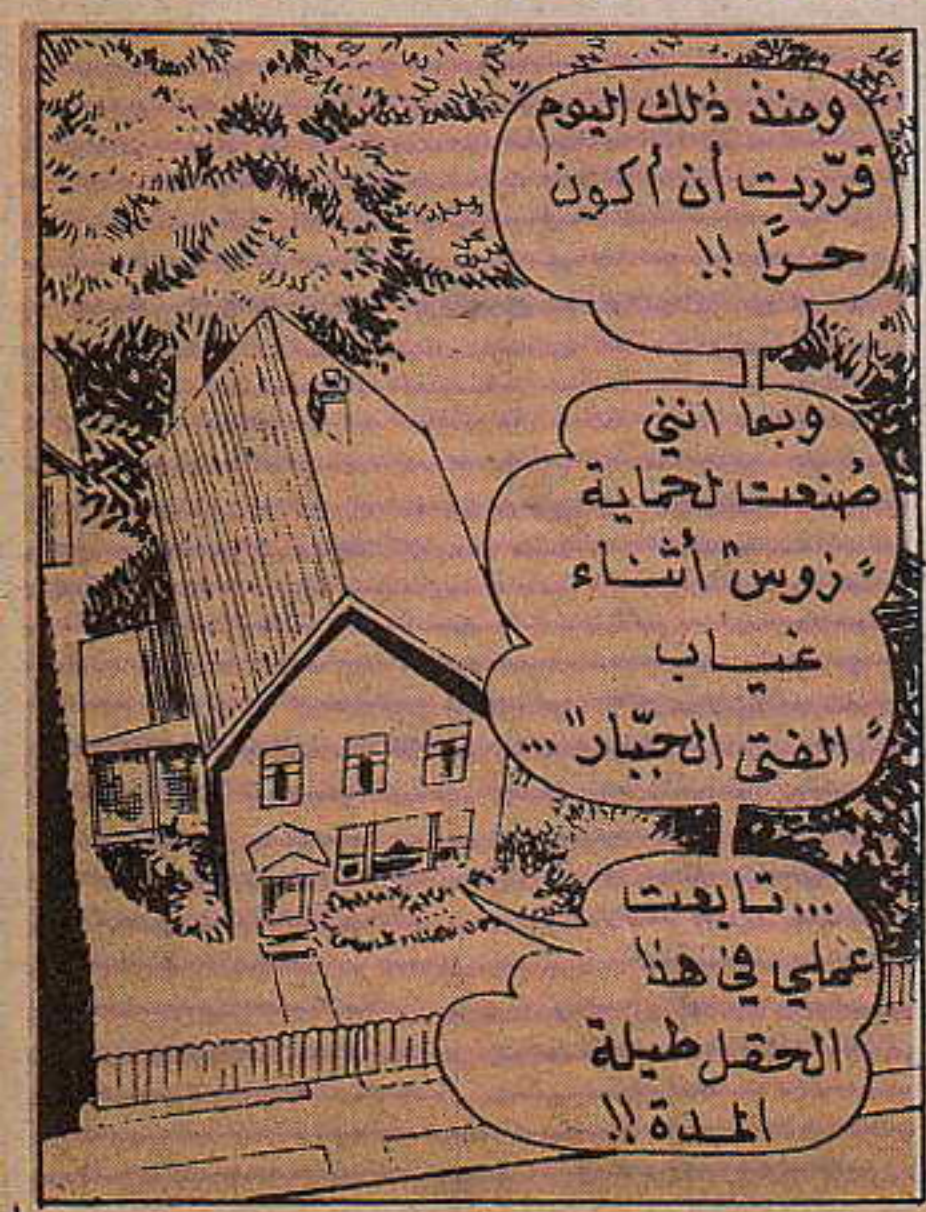 ومنذ ذلك اليوم
قرّرت أن أكون
حرًا !!
وبما انني
صُنعت لحماية
"زوس" أثناء
غياب
"الفتى الجبّار"...
...تابعت
عملي في هذا
الحقل طيلة
المدة !!